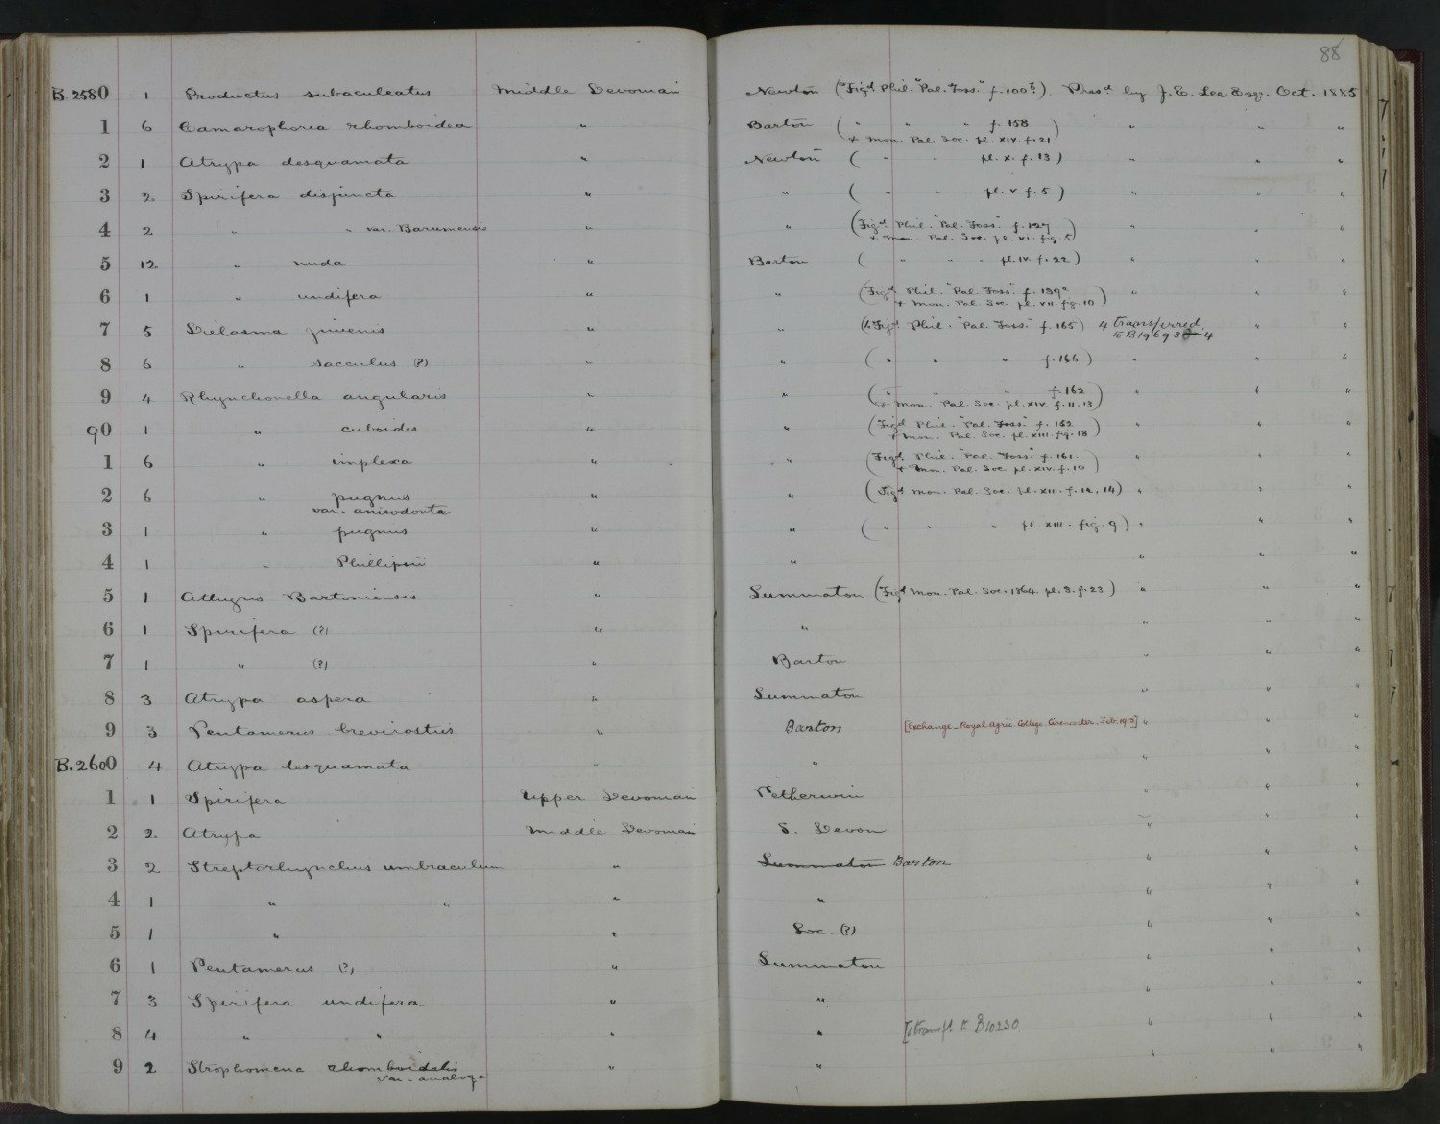 88
B.2580 1 Productus subaculeatus Middle Devonian Newton (Figd. Phil. "Pal. Foss." f. 100?) Presd. by J. E. Lee Esqr. Oct. 1885
1 6 Camarophoria rhomboidea " Barton ( " " " f. 158 ) " " "
& Mon. Pal. Soc. pl. xiv. f. 21
2 1 Atrypa desquamata " Newton ( " " pl. x. f. 13 ) " " "
3 2 Spirifera disjuncta " " ( " " pl. v f. 5 ) " " "
4 2 " " var. Barumensis " " (Figd. Phil. "Pal. Foss." f. 127 " " "
& Mon. Pal. Soc. pl. vi. fig. 5)
5 12 " nuda " Barton ( " " " pl. iv. f. 22 ) " " "
6 1 " undifera " " (Figd. Phil. "Pal. Foss." f. 139a " " "
& Mon. Pal. Soc. pl. vii fig. 10)
7 5 Dielasma juvenis " " (1. Figd Phil. "Pal. Foss." f. 165) 4 transferred " "
to B19693-4
8 6 " sacculus (?) " " ( " " " f. 166 ) " " "
9 4 Rhynchonella angularis " " ( " " " f. 162 " " "
& Mon. Pal. Soc. pl. xiv. f. 11, 13)
90 1 " cuboides " " (Figd Phil. "Pal. Foss." f. 152 " " "
& Mon. Pal. Soc. pl. xiii. fig. 18)
1 6 " implexa " " (Figd. Phil. "Pal. Foss." f. 161. " " "
& Mon. Pal. Soc. pl. xiv. f. 10)
2 6 " pugnus " " (Figd. Mon. Pal. Soc. pl. xii. f. 12, 14) " " "
var. anisodonta
3 1 " pugnus " " ( " " " pl. xiii. fig. 9 ) " " "
4 1 " Phillipsii " " " " "
5 1 Athyris Bartoniensis " Lummaton (Figd Mon. Pal. Soc. 1864. pl. 3. f. 23) " " "
6 1 Spirifera (?) " " " " "
7 1 " (?) " Barton " " "
8 3 Atrypa aspera " Lummaton " " "
9 3 Pentamerus brevirostris " Barton [Exchange_ Royal Agric. College Cirencester. Feb. ] " " "
B.2600 4 Atrypa desquamata " " " " "
1 1 Spirifera Upper Devonian Petherwin " " "
2 2 Atrypa Middle Devonian S. Devon " " "
3 2 Streptorhynchus umbraculum " Lummaton Barton " " "
4 1 " " " " " " "
5 1 " " Loc. (?) " " "
6 1 Pentamerus (?) " Lummaton " " "
7 3 Spirifera undifera " " " " "
8 4 " " " " [1 transfd. to B10230. " " "
9 2 Strophomena rhomboidalis " " " " "
var. analoga